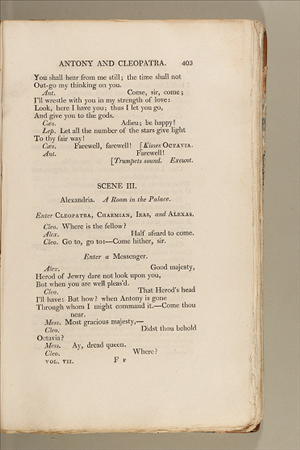 ANTONY AND CLEOPATRA. 403
You shall hear from me still; the time shall not
Out-go my thinking on you.
Ant. Come, sir, come;
I'll wrestle with you in my strength of love:
Look, here I have you; thus I let you go,
And give you to the gods.
Cæs. Adieu; be happy!
Lep. Let all the number of the stars give light
To thy fair way!
Cæs. Farewell, farewell! [Kisses OCTAVIA.
Ant. Farewell!
[Trumpets sound. Exeunt.
SCENE III.
Alexandria. A Room in the Palace.
Enter CLEOPATRA, CHARMIAN, IRAS, and ALEXAS.
Cleo. Where is the fellow?
Alex. Half afeard to come.
Cleo. Go to, go to:—Come hither, sir.
Enter a Messenger.
Alex. Good majesty,
Herod of Jewry dare not look upon you,
But when you are well pleas'd.
Cleo. That Herod's head
I'll have: But how? when Antony is gone
Through whom I might command it.—Come thou
near.
Mess. Most gracious majesty,—
Cleo. Didst thou behold
Octavia?
Mess. Ay, dread queen.
Cleo. Where?
VOL. VII. F F